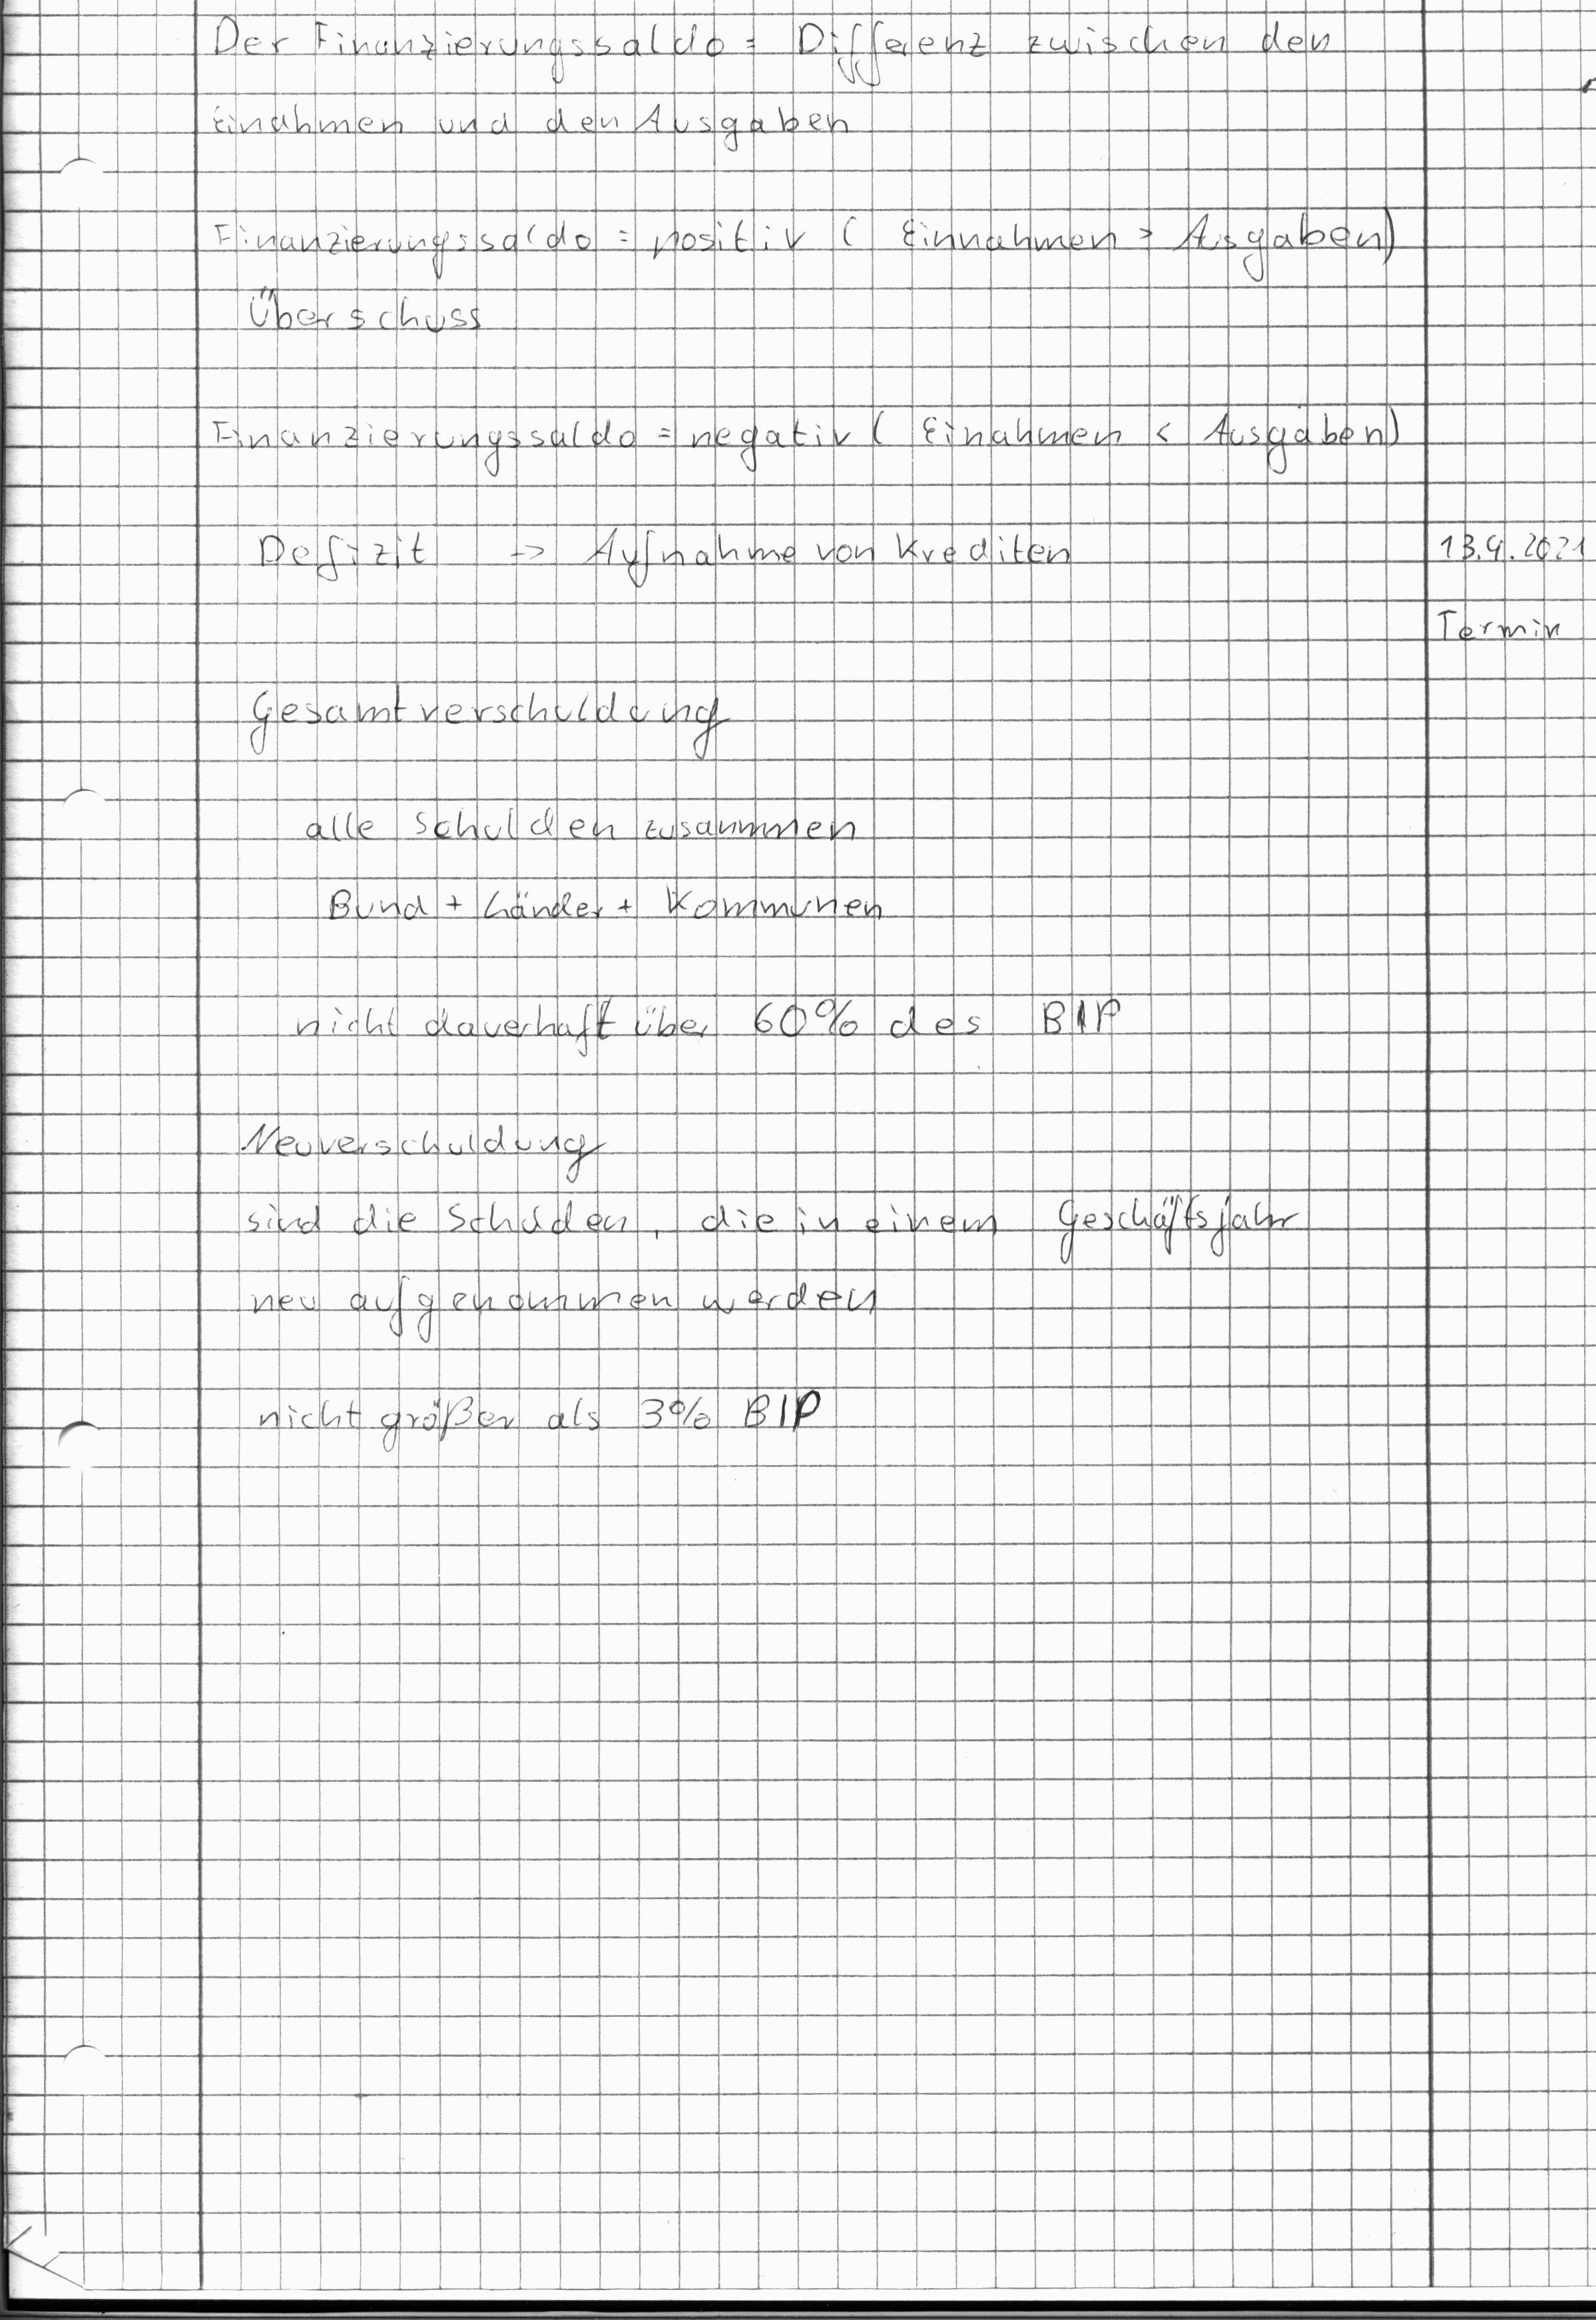 Der Finanzierungssaldo = Differenz zwischen den
Einahmen und den Ausgaben
Finanzierungssaldo = positiv ( Einnahmen > Asgaben)
Überschuss
Finanzierungssaldo = negativ ( Einahmen < Ausgaben)
Defizit -> Aufnahme von Krediten
13.4.2021
Termin
Gesamtverschuldung
alle Schulden zusammen
Bund + Länder + Kommunen
nicht dauerhaft über 60% des BIP
Neuverschuldung
sind die Schulden, die in einem Geschäftsjahr
neu aufgenommen werden
nicht größer als 3% BIP